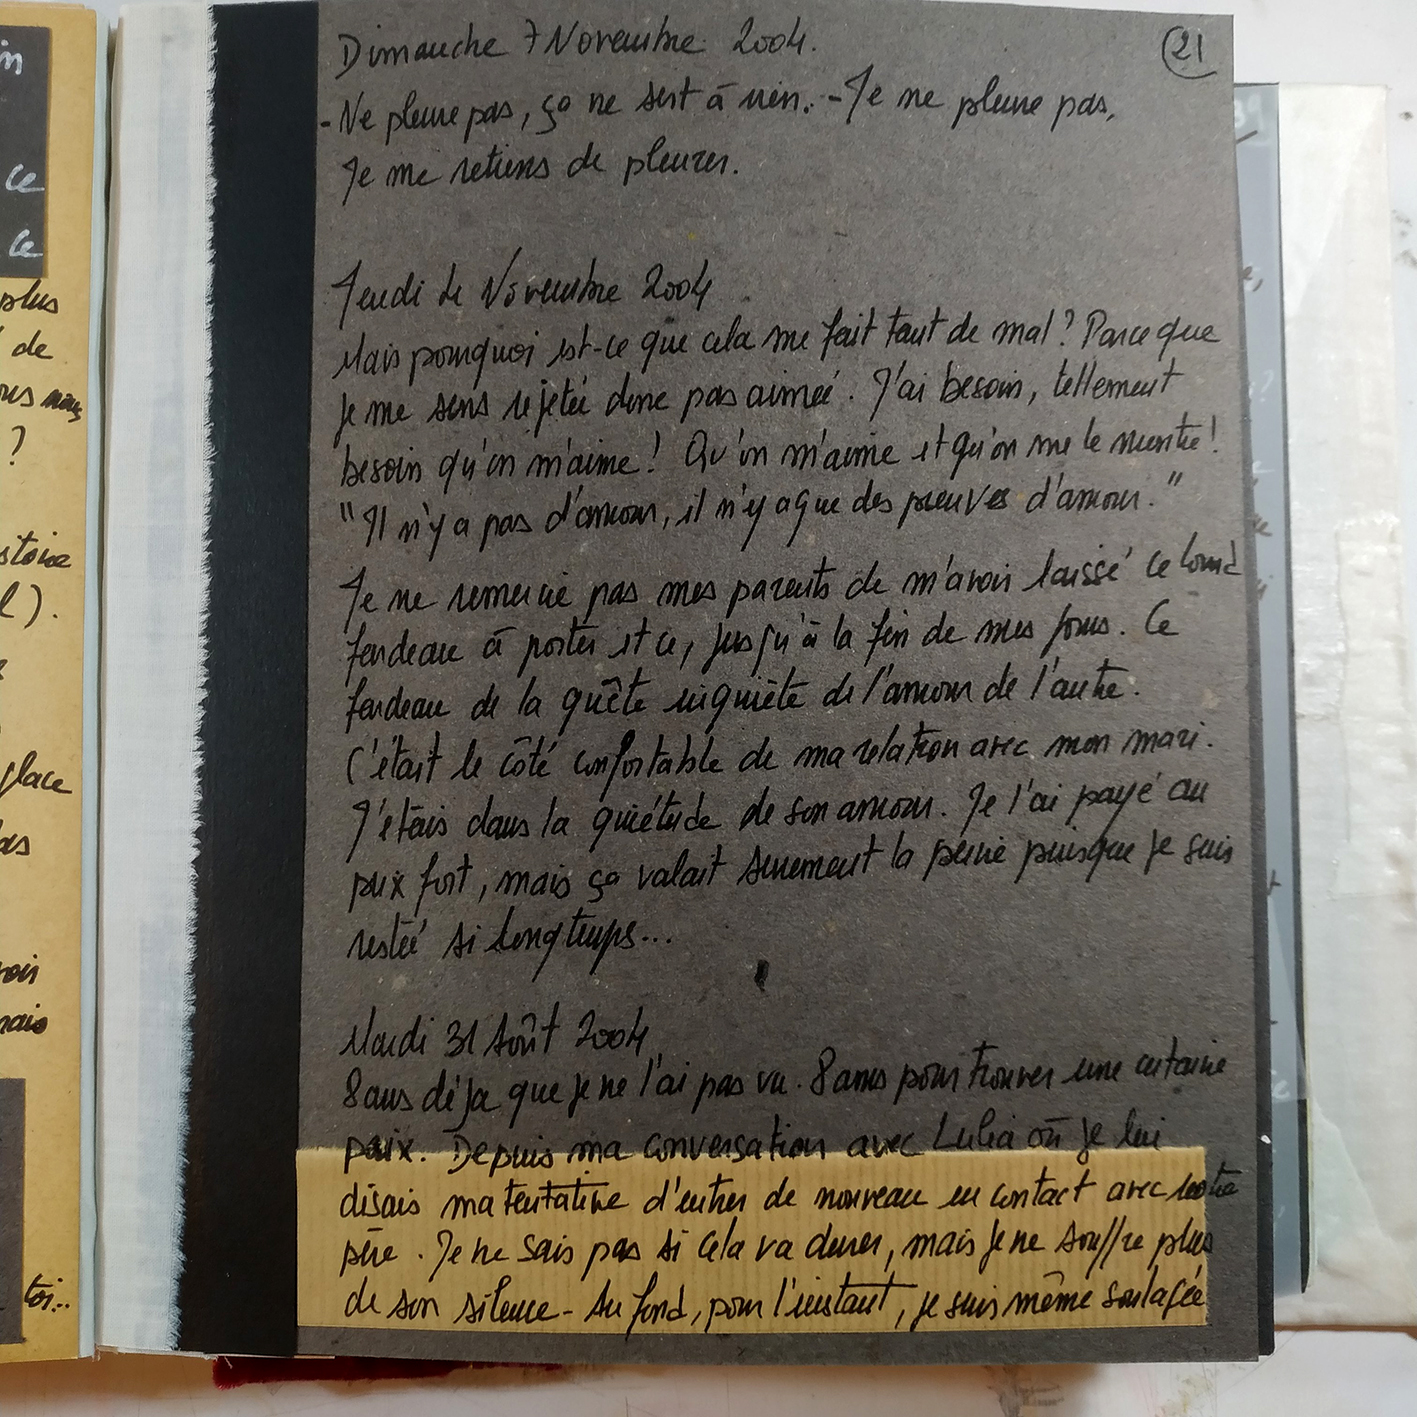 in
ce
ce
plus
de
?
stoire
l).
place
pas
toi...
21
Dimanche 7 Novembre 2004.
- Ne pleure pas, ça ne sert à rien. - Je ne pleure pas,
Je me retiens de pleurer.
Jeudi 4 Novembre 2004
Mais pourquoi est-ce que cela me fait tant de mal ? Parce que
je me sens rejetée donc pas aimée. J'ai besoin, tellement
besoin qu'on m'aime ! Qu'on m'aime et qu'on me le montre !
"Il n'y a pas d'amour, il n'y a que des preuves d'amour."
Je ne remercie pas mes parents de m'avoir laissé ce lourd
fardeau à porter et ce, jusqu'à la fin de mes jours. Ce
fardeau de la quête inquiète de l'amour de l'autre.
C'était le côté confortable de ma relation avec mon mari.
J'étais dans la quiétude de son amour. Je l'ai payé au
prix fort, mais ça valait sûrement la peine puisque je suis
restée si longtemps...
Mardi 31 Août 2004
8 ans déjà que je ne l'ai pas vu. 8 ans pour trouver une certaine
paix. Depuis ma conversation avec Lulia où je lui
disais ma tentative d'entrer de nouveau en contact avec notre
père. Je ne sais pas si cela va durer, mais je ne souffre plus
de son silence - Au fond, pour l'instant, je suis même soulagée